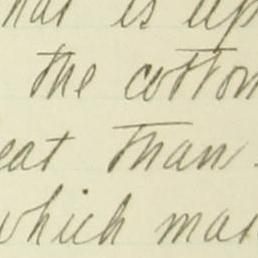 hat is up
the cotton
eat than
which mat